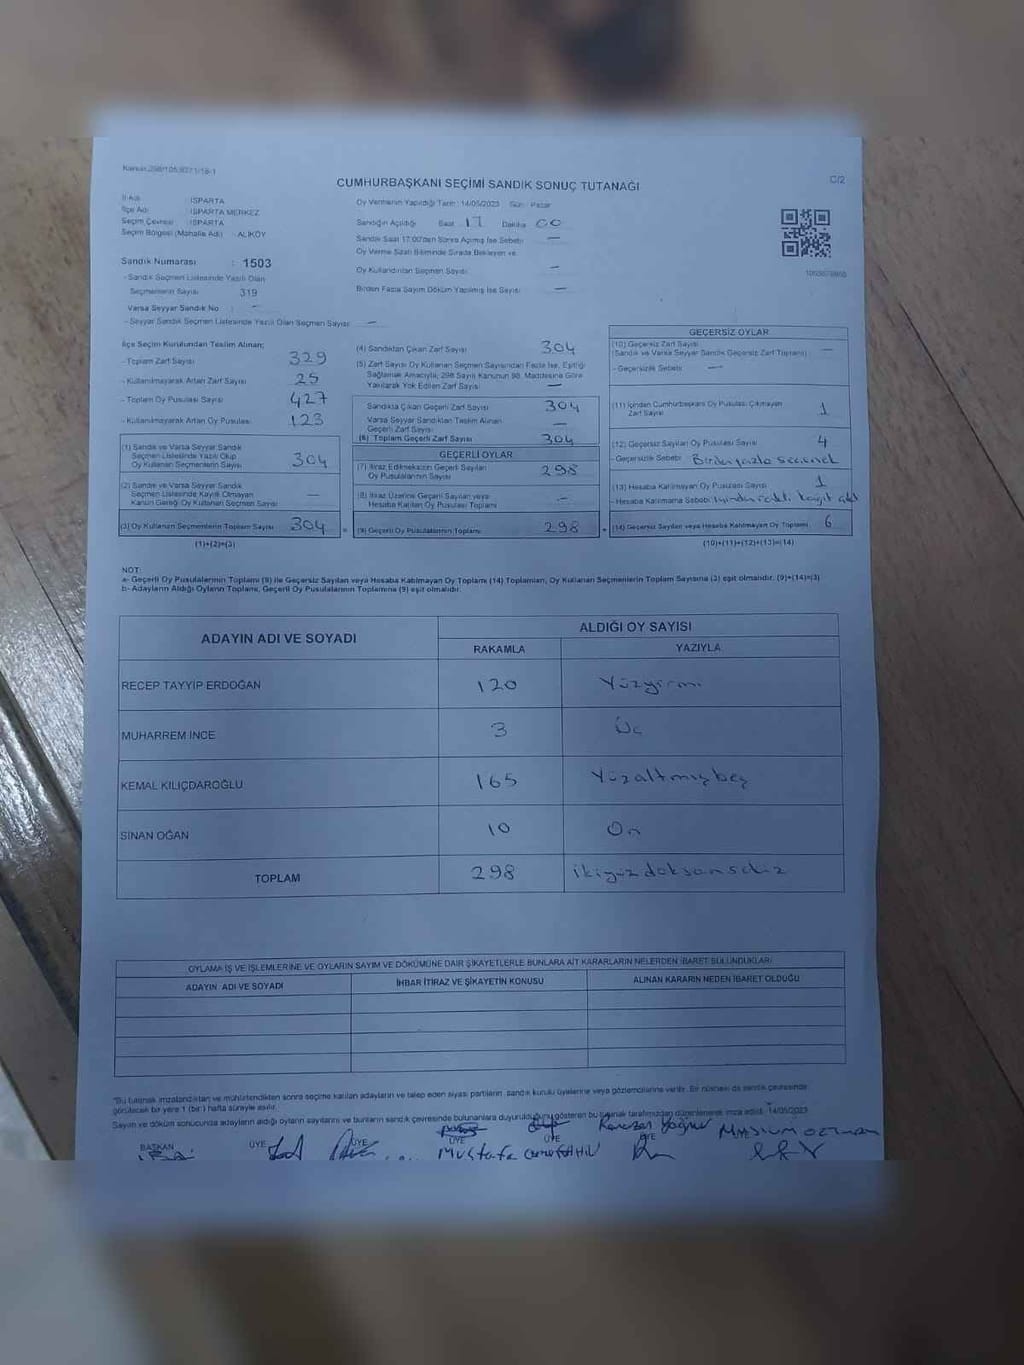 CUMHURBAŞKANI SEÇİMİ SANDIK SONUÇ TUTANAĞI
C/2
İl Adı : ISPARTA
İlçe Adı : ISPARTA MERKEZ
Seçim Çevresi : ISPARTA
Seçim Bölgesi (Mahalle Adı) : ALIKÖY
Sandık Numarası : 1503
- Sandık Seçmen Listesinde Yazılı Olan
Seçmenlerin Sayısı 319
Varsa Seyyar Sandık No : —
- Seyyar Sandık Seçmen Listesinde Yazılı Olan Seçmen Sayısı: —
Oy Vermenin Yapıldığı Tarih : 14/05/2023 Gün : Pazar
Sandığın Açıldığı Saat 17 Dakika 00
Sandık Saat 17:00'den Sonra Açılmış İse Sebebi —
Oy Verme Saati Bitiminde Sırada Bekleyen ve
Oy Kullandırılan Seçmen Sayısı —
Birden Fazla Sayım Döküm Yapılmış İse Sayısı : —
İlçe Seçim Kurulundan Teslim Alınan;
- Toplam Zarf Sayısı 329
- Kullanılmayarak Artan Zarf Sayısı 25
- Toplam Oy Pusulası Sayısı 427
- Kullanılmayarak Artan Oy Pusulası 123
(1) Sandık ve Varsa Seyyar Sandık
Seçmen Listesinde Yazılı Olup
Oy Kullanan Seçmenlerin Sayısı 304
(2) Sandık ve Varsa Seyyar Sandık
Seçmen Listesinde Kayıtlı Olmayan
Kanun Gereği Oy Kullanan Seçmen Sayısı —
(3) Oy Kullanan Seçmenlerin Toplam Sayısı 304
(1)+(2)=(3)
(4) Sandıktan Çıkan Zarf Sayısı 304
(5) Zarf Sayısı Oy Kullanan Seçmen Sayısından Fazla İse, Eşitliği
Sağlamak Amacıyla, 298 Sayılı Kanunun 98. Maddesine Göre
Yakılarak Yok Edilen Zarf Sayısı —
Sandıkta Çıkan Geçerli Zarf Sayısı 304
Varsa Seyyar Sandıktan Teslim Alınan
Geçerli Zarf Sayısı —
(6) Toplam Geçerli Zarf Sayısı 304
GEÇERLİ OYLAR
(7) İtiraz Edilmeksizin Geçerli Sayılan
Oy Pusulalarının Sayısı 298
(8) İtiraz Üzerine Geçerli Sayılan veya
Hesaba Katılan Oy Pusulası Toplamı —
(9) Geçerli Oy Pusulalarının Toplamı 298
GEÇERSİZ OYLAR
(10) Geçersiz Zarf Sayısı
(Sandık ve Varsa Seyyar Sandık Geçersiz Zarf Toplamı) —
- Geçersizlik Sebebi —
(11) İçinden Cumhurbaşkanı Oy Pusulası Çıkmayan
Zarf Sayısı 1
(12) Geçersiz Sayılan Oy Pusulası Sayısı 4
- Geçersizlik Sebebi Birden fazla seçenek
(13) Hesaba Katılmayan Oy Pusulası Sayısı 1
- Hesaba Katılmama Sebebi kağıt
(14) Geçersiz Sayılan veya Hesaba Katılmayan Oy Toplamı 6
(10)+(11)+(12)+(13)=(14)
NOT:
a- Geçerli Oy Pusulalarının Toplamı (9) ile Geçersiz Sayılan veya Hesaba Katılmayan Oy Toplamı (14) Toplamları, Oy Kullanan Seçmenlerin Toplam Sayısına (3) eşit olmalıdır. (9)+(14)=(3)
b- Adayların Aldığı Oyların Toplamı, Geçerli Oy Pusulalarının Toplamına (9) eşit olmalıdır.
ADAYIN ADI VE SOYADI ALDIĞI OY SAYISI
RAKAMLA YAZIYLA
RECEP TAYYİP ERDOĞAN 120 Yüzyirmi
MUHARREM İNCE 3 Üç
KEMAL KILIÇDAROĞLU 165 Yüzaltmışbeş
SİNAN OĞAN 10 On
TOPLAM 298 ikiyüzdoksansekiz
OYLAMA İŞ VE İŞLEMLERİNE VE OYLARIN SAYIM VE DÖKÜMÜNE DAİR ŞİKAYETLERLE BUNLARA AİT KARARLARIN NELERDEN İBARET BULUNDUKLARI
ADAYIN ADI VE SOYADI İHBAR İTİRAZ VE ŞİKAYETİN KONUSU ALINAN KARARIN NEDEN İBARET OLDUĞU
*Bu tutanak imzalandıktan ve mühürlendikten sonra seçime katılan adayların ve talep eden siyasi partilerin sandık kurulu üyelerine veya gözlemcilerine verilir. Bir nüshası da sandık çevresinde
görülecek bir yere 1 (bir) hafta süreyle asılır.
Sayım ve döküm sonucunda adayların aldığı oyların sayılarını ve bunların sandık çevresinde bulunanlara duyurulduğunu gösteren bu tutanak tarafımızdan düzenlenerek imza edildi. 14/05/2023
BAŞKAN ÜYE ÜYE ÜYE ÜYE ÜYE
Mustafa